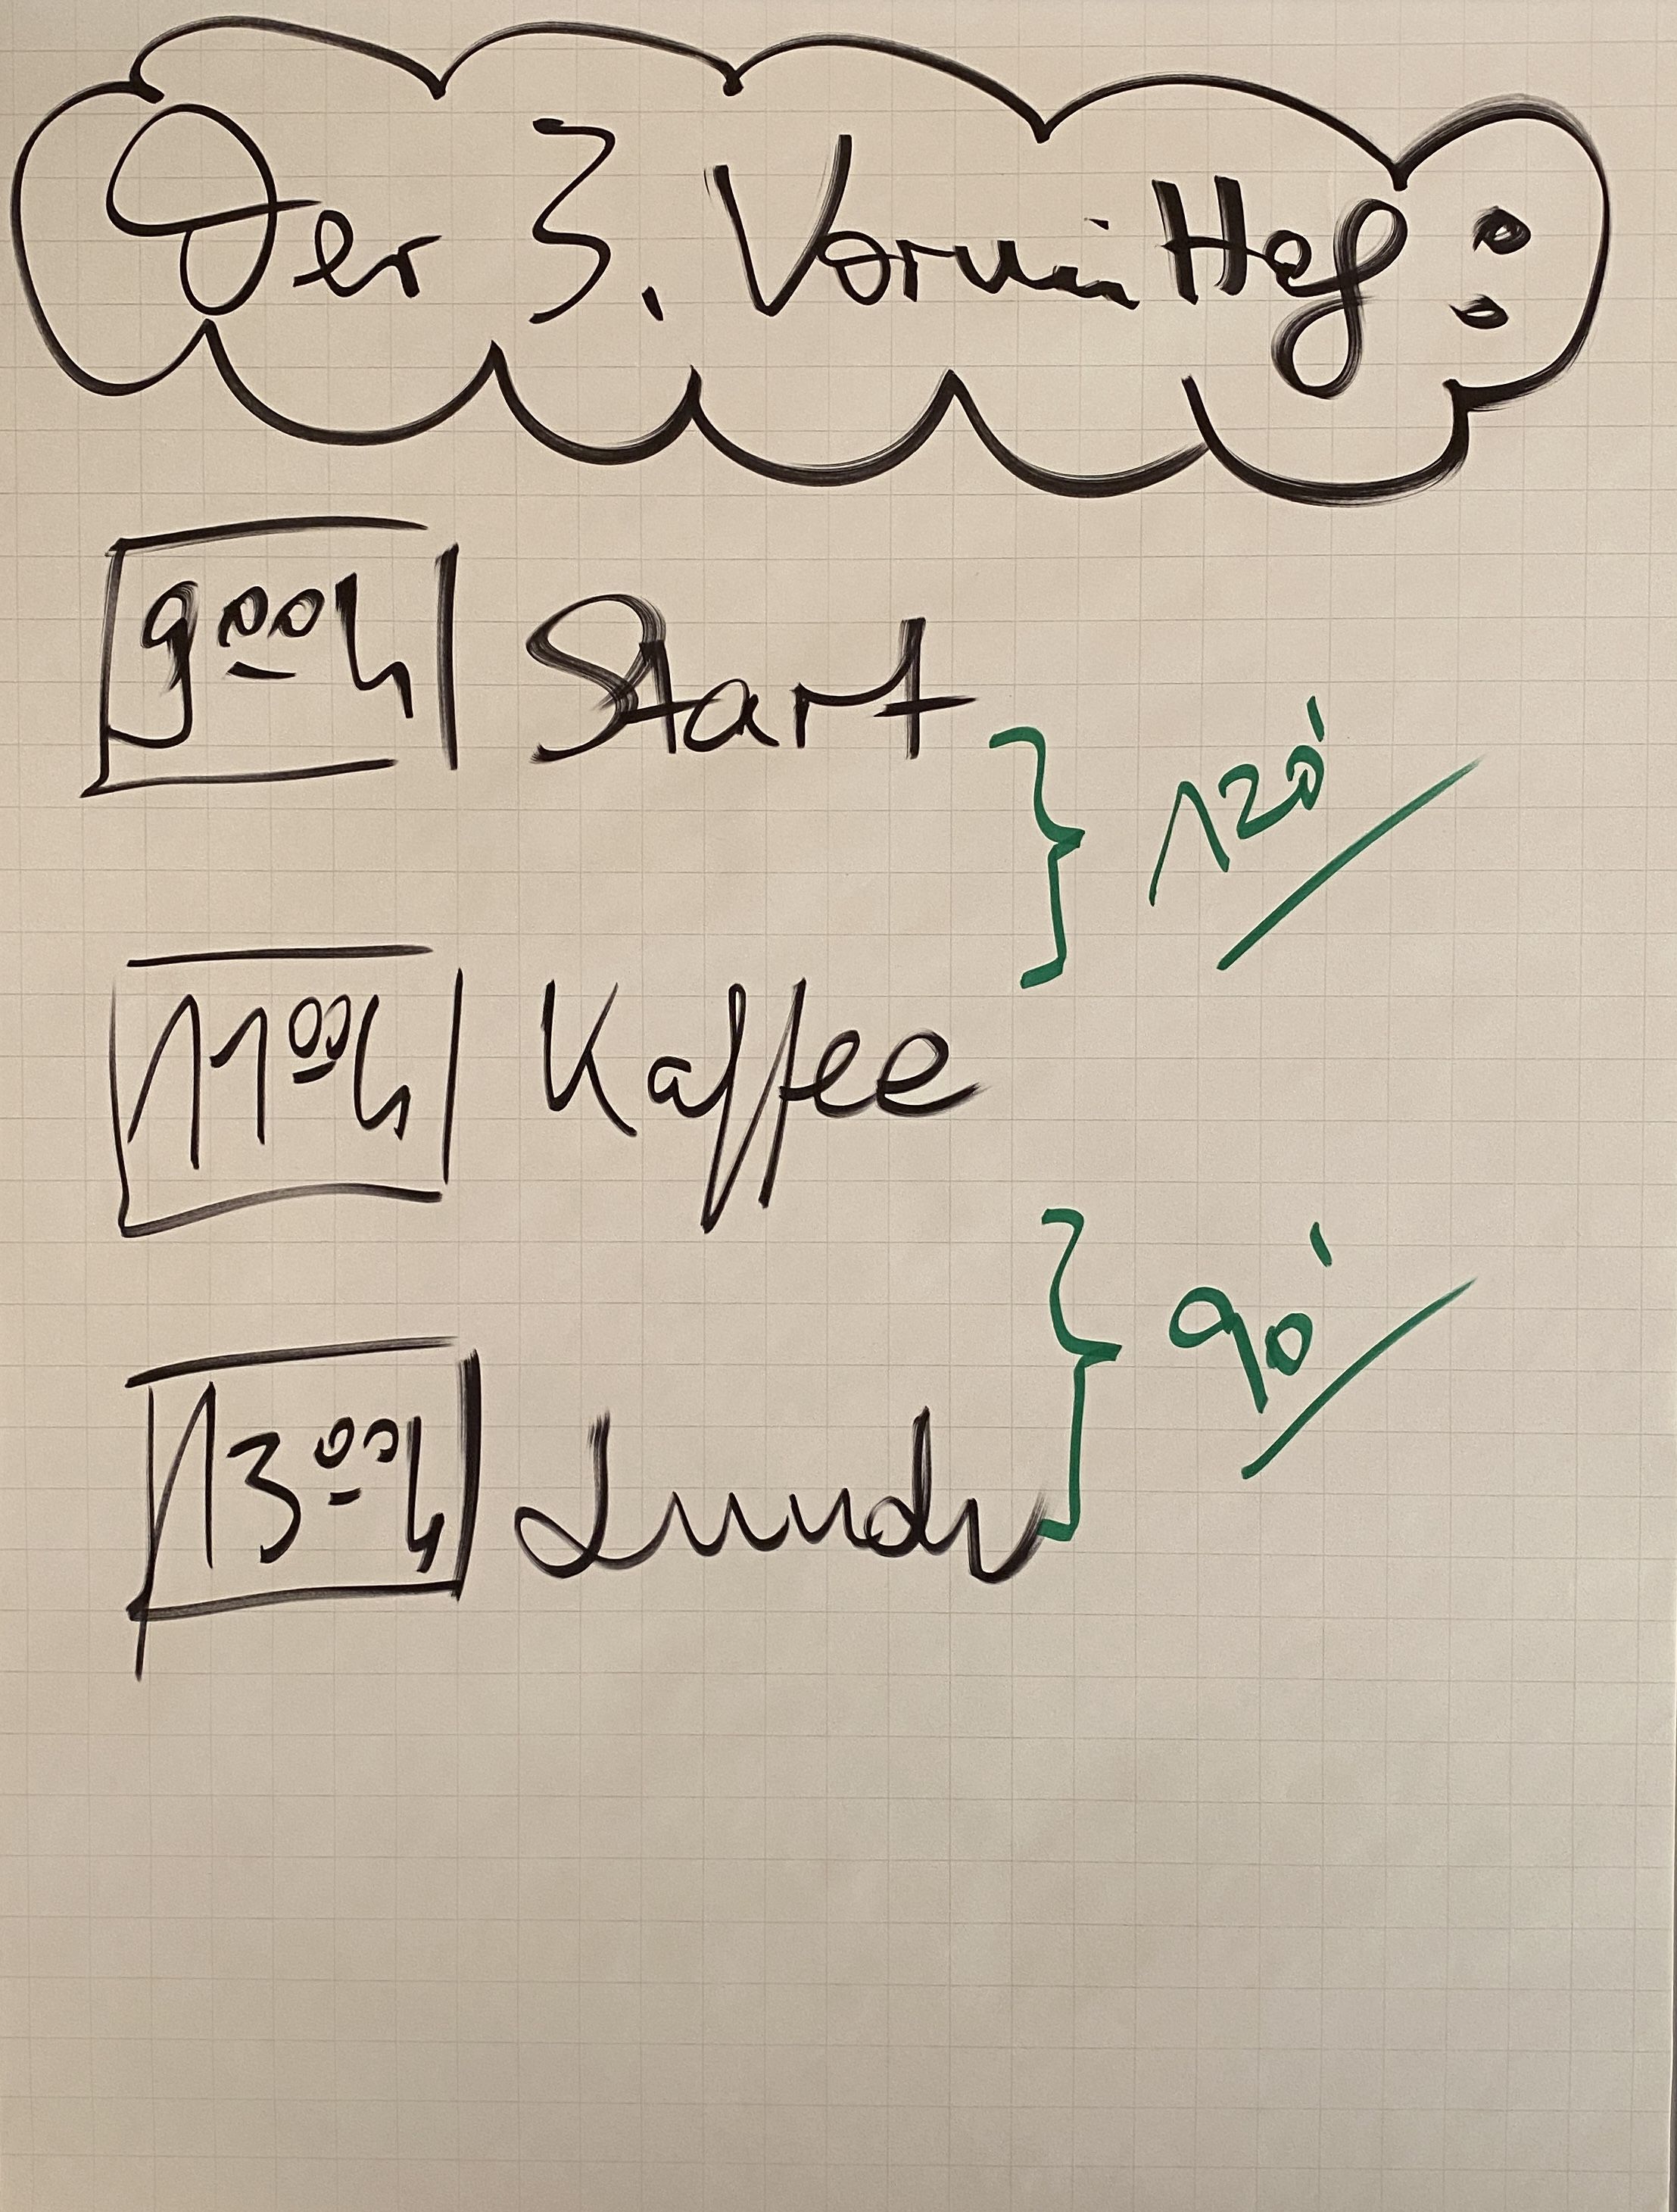 Der 3. Vormittag:
9 00 h Start
120'
11 00 h Kaffee
90'
13 00 h Lunch